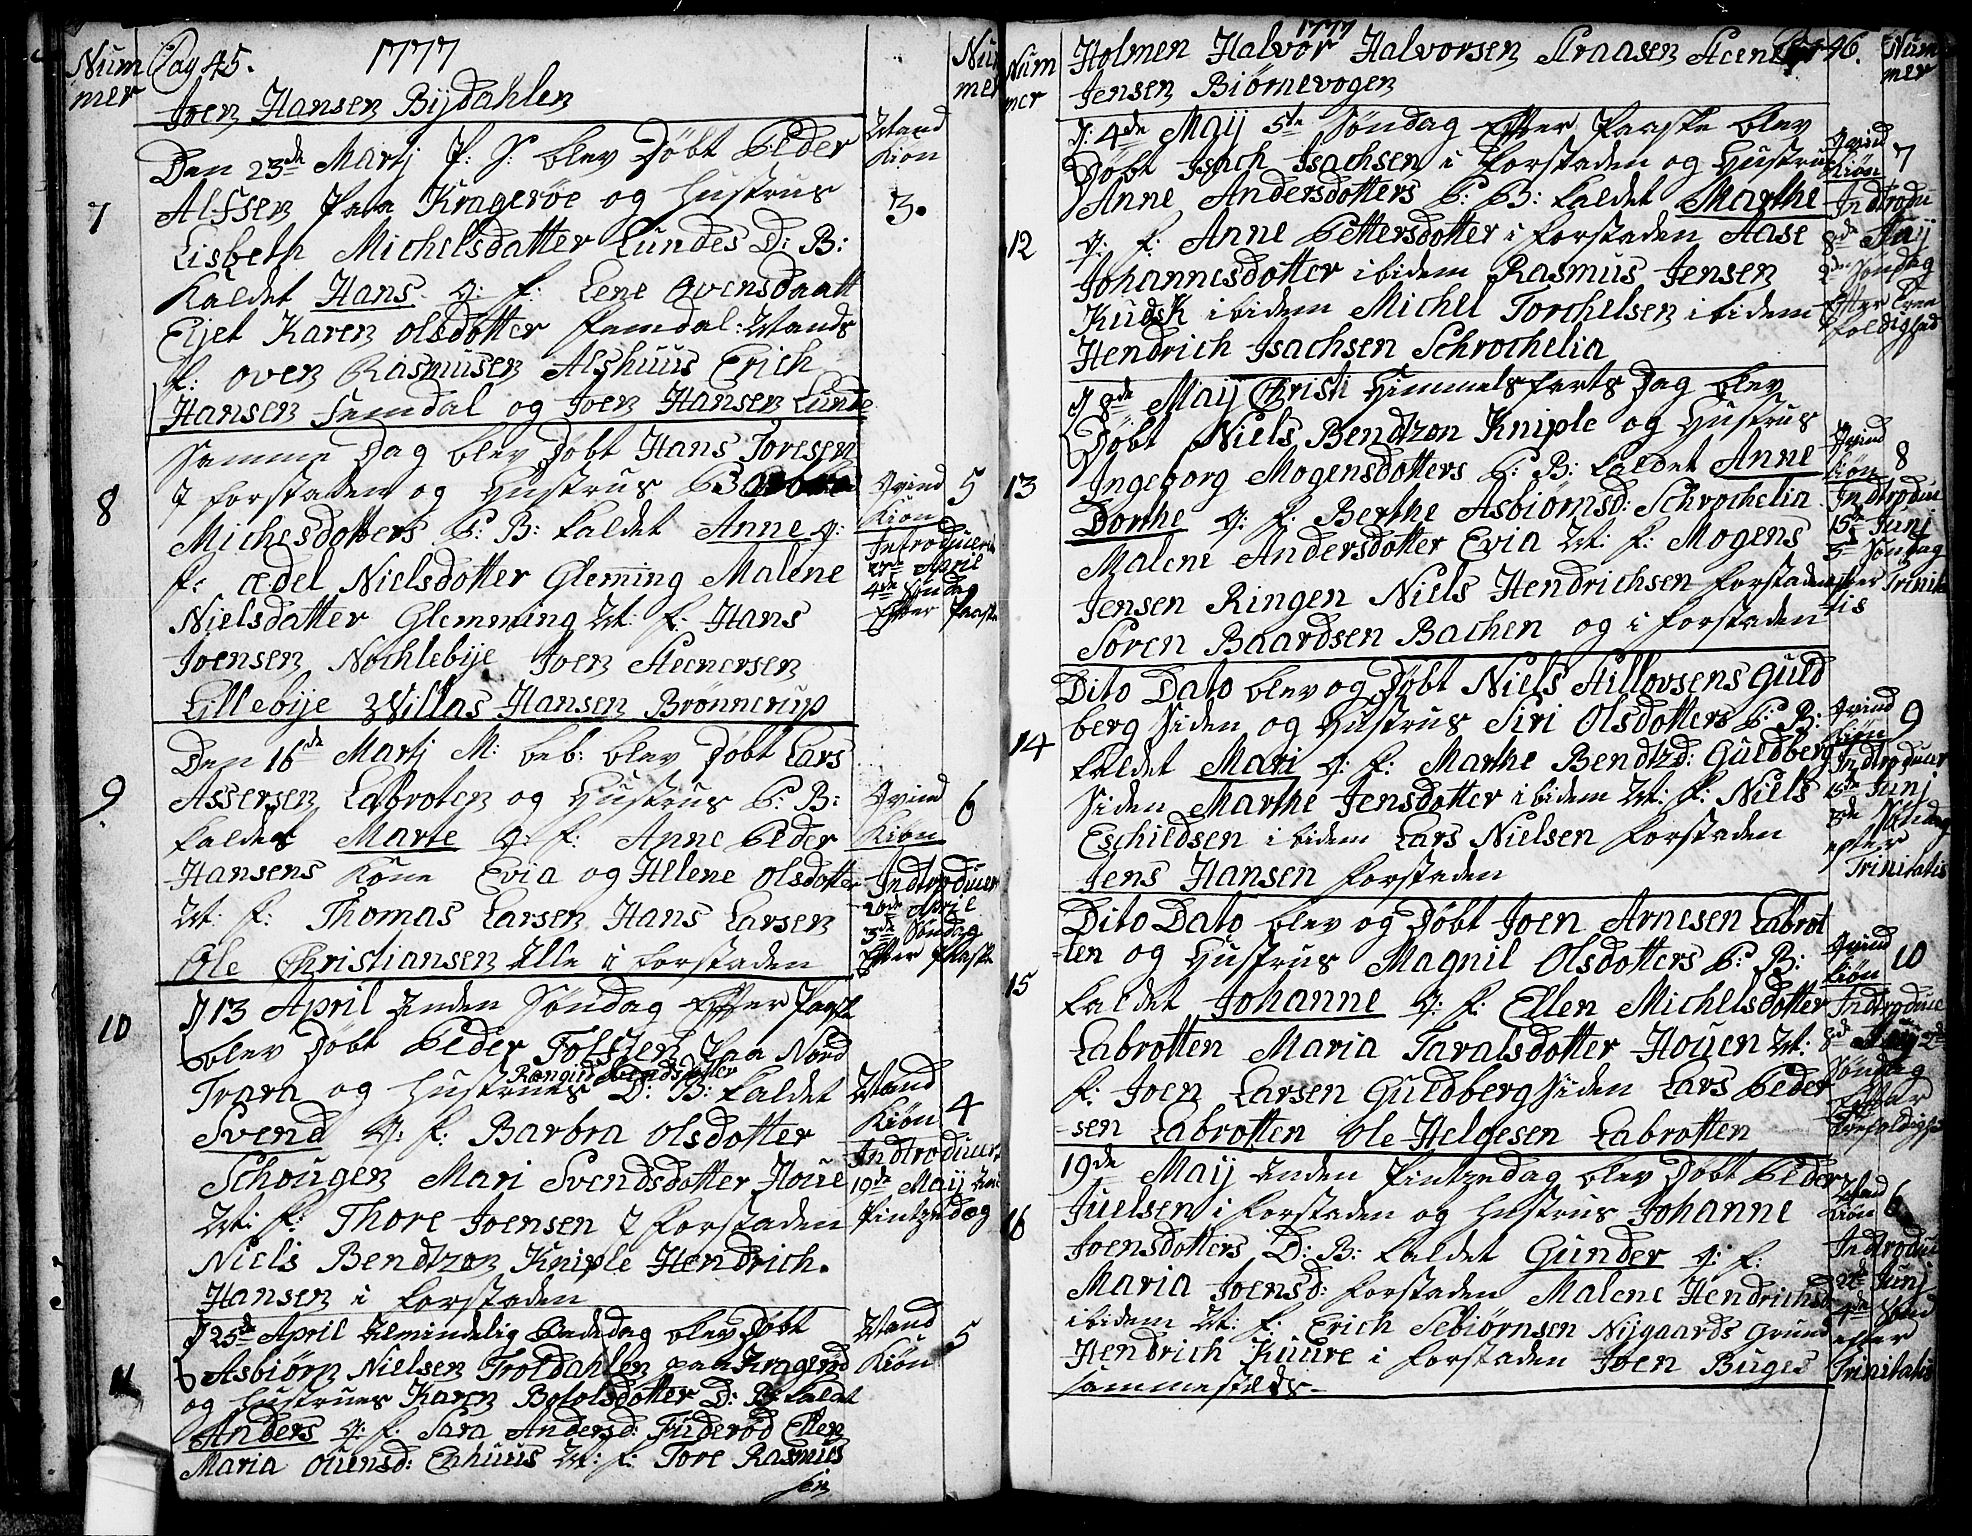 Num
mer
Pag 45.
1777
Num
mer
Joen Hansen Bijdahlen
Den 23de Martj P: S: blev Døbt Peder
Alfsen Paa Kragerøe og Hustrus
Lisbeth Michelsdatter Lundes D: B:
Kaldet Hans q: f: Lene Ovensdaatt
Eijet Karen Olsdotter Femdal: Mands
f: Oven Rasmusen Alshuus Erich
Hansen Femdal og Joen Hansen Lunde
7
Mand
Kiøn
3.
Samme Dag blev Døbt Hans Toresen
I forstaden og Hustrus
Michelsdotters P: B: kaldet Anne q:
f: Ædel Nielsdotter Glemming Malene
Nielsdatter Glemming M: f: Hans
Joensen Nochlebije Joen Steenersen
Lillebije Willas Hansen Brønnerup
8
Qvind
Kiøn
5
Introducerit
27de April
4de Søndag
Efter Paaske
Den 16de Martj M: beb: blev Døbt Lars
Assersen Labroten og Hustrus P: B:
kaldet Marte q: f: Anne Peder
Hansens Kone Evia og Helene Olsdotter
M: f: Thomas Larsen Hans Larsen
Ole Christiansen Alle i forstaden
9.
Qvind
Kiøn
6
Indtroducer
20de April
3de Søndag
Efter Paaske
D 13 April Anden Søndag Efter Paask
blev Døbt Peder Folsten Paa Nord
Rangid Svendsdotter
Trara og Hustrues D: B: kaldet
Svend q: f: Barbra Olsdotter
Schougen Mari Svendsdotter Houe
M: f: Thore Joensen I forstaden
Niels Bendtzon Kniple Hendrich.
Hansen i forstaden
10
Mand
Kiøn
4
Indtroducer
19de Maij And
Pintzedag
D 25de April Almindelig Bededag blev Døbt
Asbiørn Nielsen Troldahlen paa Kragerød
og Hustrues Karen Botolsdotter D: B: kaldt
Anders q: f: Sara Andersd: Fuderød Ellen
Maria Ouensd: Enhuus M: f: Tore Rasmus
sen
11
Mand
Kiøn
5
Num
mer
1777
Pag 46.
Num
mer
Holmen Halvor Halvorsen Straasen Steen
Jensen Biørnevogen
D: 4de Maij 5te Søndag Efter Paaske blev
Døbt Isach Isachsen i forstaden og Hustrus
Anne Andersdotters P: B: kaldet Marthe
q: f: Anne Pettersdotter i forstaden Aase
Johannesdotter ibidem Rasmus Jensen
Kudsk ibidem Michel Torchelsen ibidem
Hendrich Isachsen Schrochelia
12
Qvind
Kiøn
7
Indtrodu
8de Maij
2den Søndag
Efter Tree
foldighed
D 8de Maij Christi Himmelfarts Dag blev
Døbt Niels Bendtzon Kniple og Hustrus
Ingeborg Mogensdotters P: B: kaldet Anne
Dorthe q: f: Berthe Asbiørnsd: Schrochelia
Malene Andersdotter Evia M: f: Mogens
Jensen Ringen Niels Hendrichsen forstaden
Søren Baardsen Bachen og i forstaden
13
Qvind
Kiøn
8
Indtroduc
15de Junj
3de Søndag
efter Trinita
tis
Dito Dato blev og Døbt Niels Stillovsens Guld
berg Siden og Hustrus Siri Olsdotters P: B:
kaldet Mari q: f: Marthe Bendtzd: Guldberg
Siden Marthe Jensdotter ibidem M: f: Niels
Eschildsen ibidem Lars Nielsen forstaden
Jens Hansen forstaden
14
Qvind
Kiøn
9
Indtroducer
15de Junj
3de Søndag
efter
Trinitatis
Dito Dato blev og Døbt Joen Arnesen Labrot
-ten og Hustrus Magnil Olsdotters P: B:
kaldet Johanne q: f: Ellen Michelsdotter
Labrotten Maria Taralsdotter Houen M:
f: Joen Larsen Guldberg Siden Lars Peder
-sen Labrotten Ole Helgesen Labrotten
15
Qvind
Kiøn
10
Indtroduce
8de 2de
Søndag
Efter
Trefoldighed
19de Maij Anden Pintzedag blev Døbt Peder
Juelsen i forstaden og Hustrus Johanne
Joensdotters D: B: kaldet Gunder q: f:
Maria Joensd: forstaden Malene Hendrichsd
ibidem M: f: Erich Sebiørnsen Nijgaards Grund
Hendrich Kuure i forstaden Joen Buges
sammestæds.
16
Mand
Kiøn
6
Indtroduc
Junj
4de Sønd
efter
Trinitatis